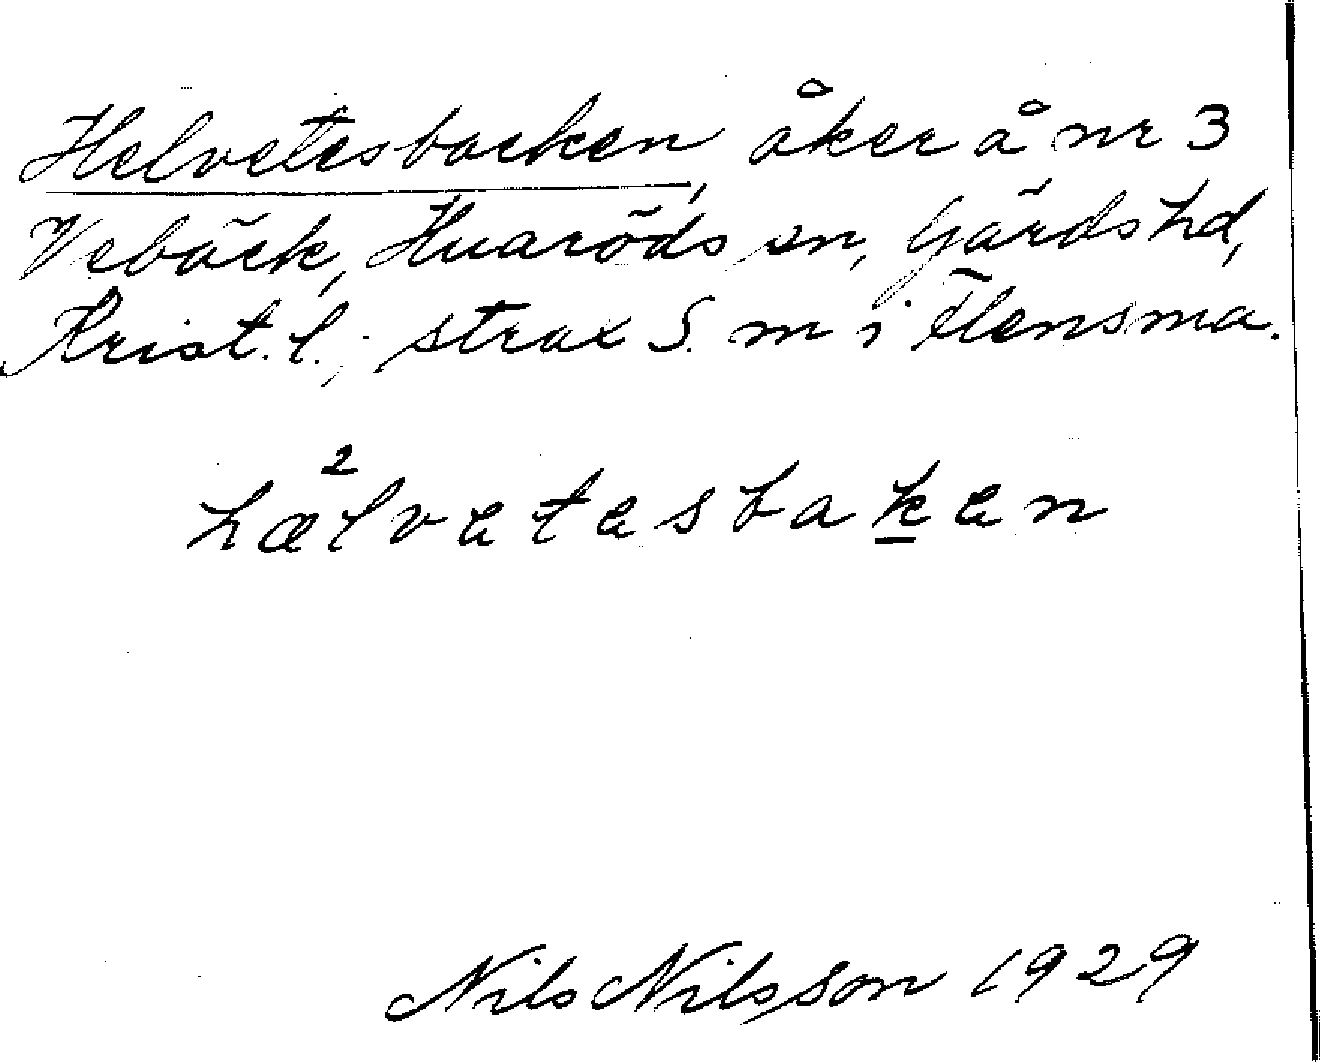 Helvetesbacken, åker å nr 3
Vebäck, Huaröds sn, Gärds hd,
Krist. l.; strax S. m i Flensma.
hæ²lvetesbaken
Nils Nilsson 1929